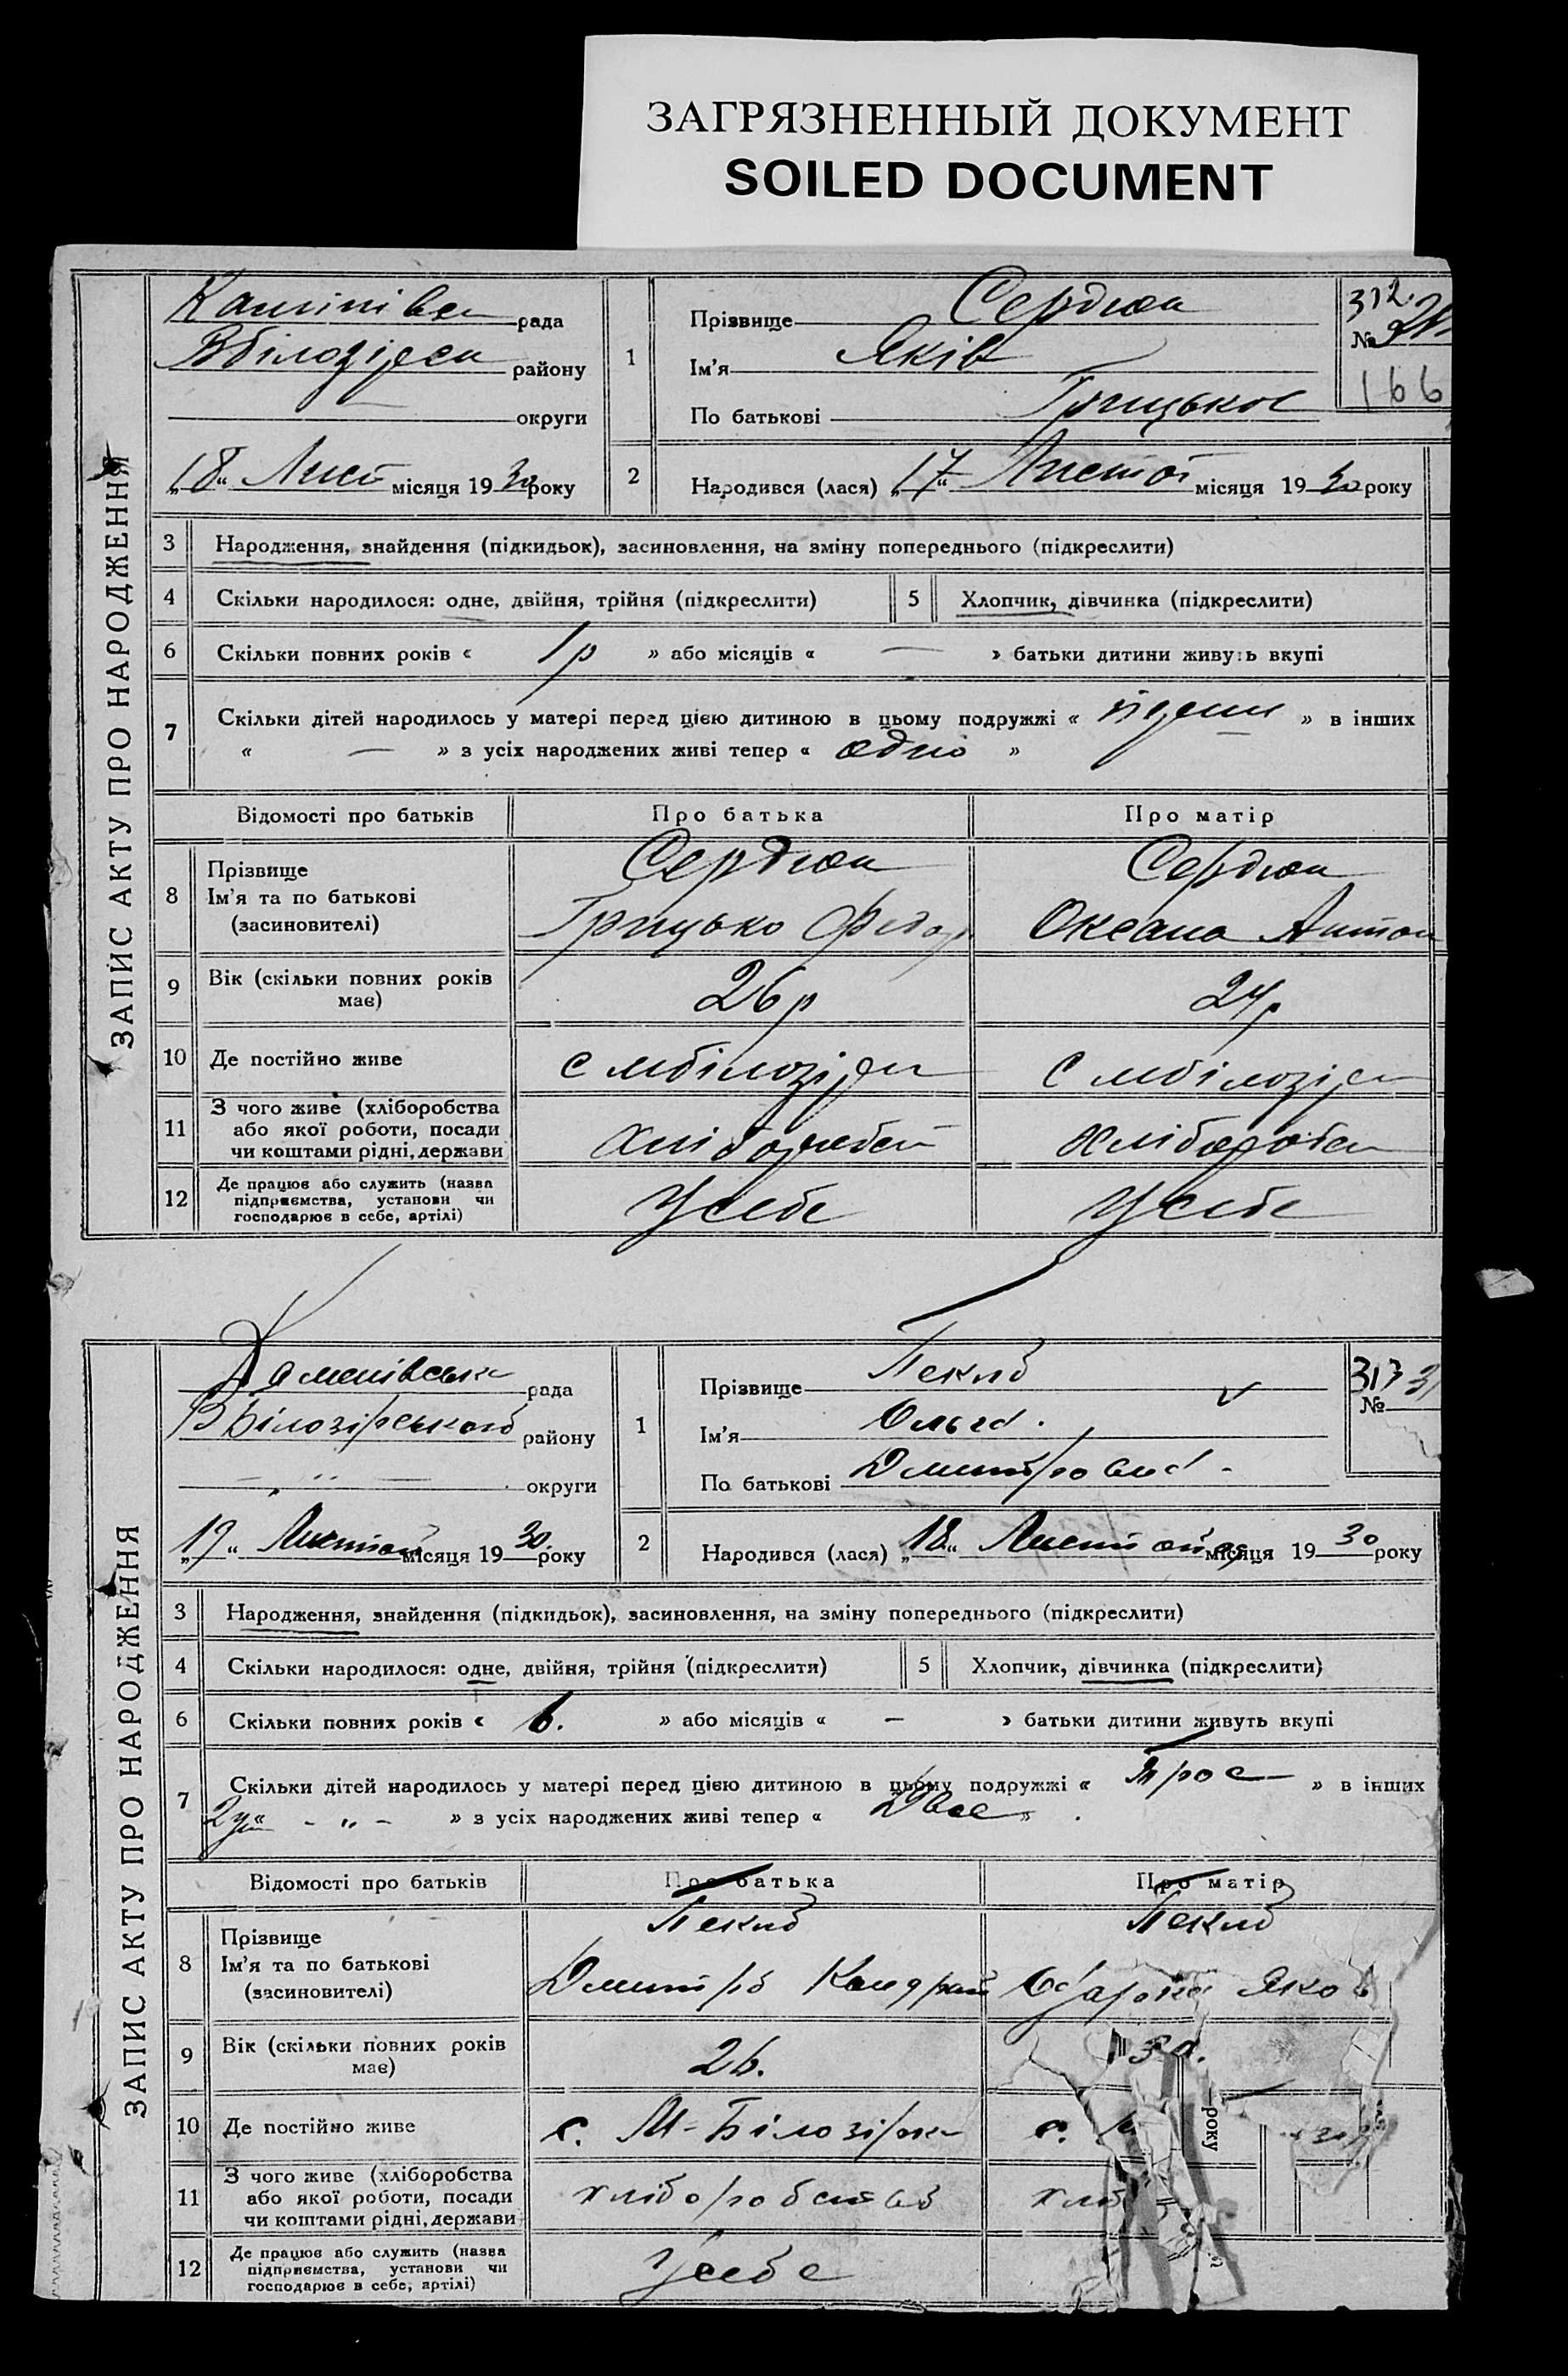 ЗАГРЯЗНЕННЫЙ ДОКУМЕНТ
SOILED DOCUMENT
ЗАПИС АКТУ ПРО НАРОДЖЕННЯ
рада
району
округи
„18“ Лист місяця 1930 року
1
Прізвище Сердюк
Ім'я Яків
По батькові Грицьков
312
№
166
2
Народився (лася) „17“ Листоп місяця 1930 року
3 Народження, знайдення (підкидьок), засиновлення, на зміну попереднього (підкреслити)
4 Скільки народилося: одне, двійня, трійня (підкреслити) 5 Хлопчик, дівчинка (підкреслити)
6 Скільки повних років « 1р » або місяців « — » батьки дитини живуть вкупі
7 Скільки дітей народилось у матері перед цією дитиною в цьому подружжі « » в інших
« — » з усіх народжених живі тепер « одно »
Відомості про батьків Про батька Про матір
8 Прізвище
Ім'я та по батькові
(засновителі)
Сердюк
Грицько Федор
Сердюк
Оксана Антон
9 Вік (скільки повних років
має)
26р
24р
10 Де постійно живе
с мбілозірк
с мбілозірк
11 З чого живе (хліборобства
або якої роботи, посади
чи коштами рідні, держави
хліборобст
хліборобст
12 Де працює або служить (назва
підприємства, установи чи
господарює в себе, артілі)
У себе
У себе
ЗАПИС АКТУ ПРО НАРОДЖЕННЯ
рада
ВБілозірськоо району
— „ — округи
„19“ Листоп місяця 1930 року
1
Прізвище
Ім'я Ольга.
По батькові Дмитровна -
313
№
2
Народився (лася) „18“ Листопад місяця 1930 року
3 Народження, знайдення (підкидьок), засиновлення, на зміну попереднього (підкреслити)
4 Скільки народилося: одне, двійня, трійня (підкреслити) 5 Хлопчик, дівчинка (підкреслити)
6 Скільки повних років « 6. » або місяців « — » батьки дитини живуть вкупі
7 Скільки дітей народилось у матері перед цією дитиною в цьому подружжі « Троє » в інших
« - „ - » з усіх народжених живі тепер « Двоє »
Відомості про батьків Про батька Про матір
8 Прізвище
Ім'я та по батькові
(засиновителі)
Дмитро Кондрат
Яков
9 Вік (скільки повних років
має)
26.
10 Де постійно живе
с. М-Білозірка
с. М
року
11 З чого живе (хліборобства
або якої роботи, посади
чи коштами рідні, держави
хліборобство
хліб
12 Де працює або служить (назва
підприємства, установи чи
господарює в себе, артілі)
У себе